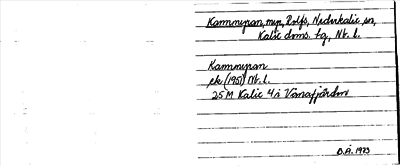 Kammypan, myr, Rolfs, Nederkalix sn,
Kalix dms. hg, Nb. l.
Kammypan
ek (1951) Nb. l.
25 M Kalix 4a Vånafjärden
B.Å. 1973